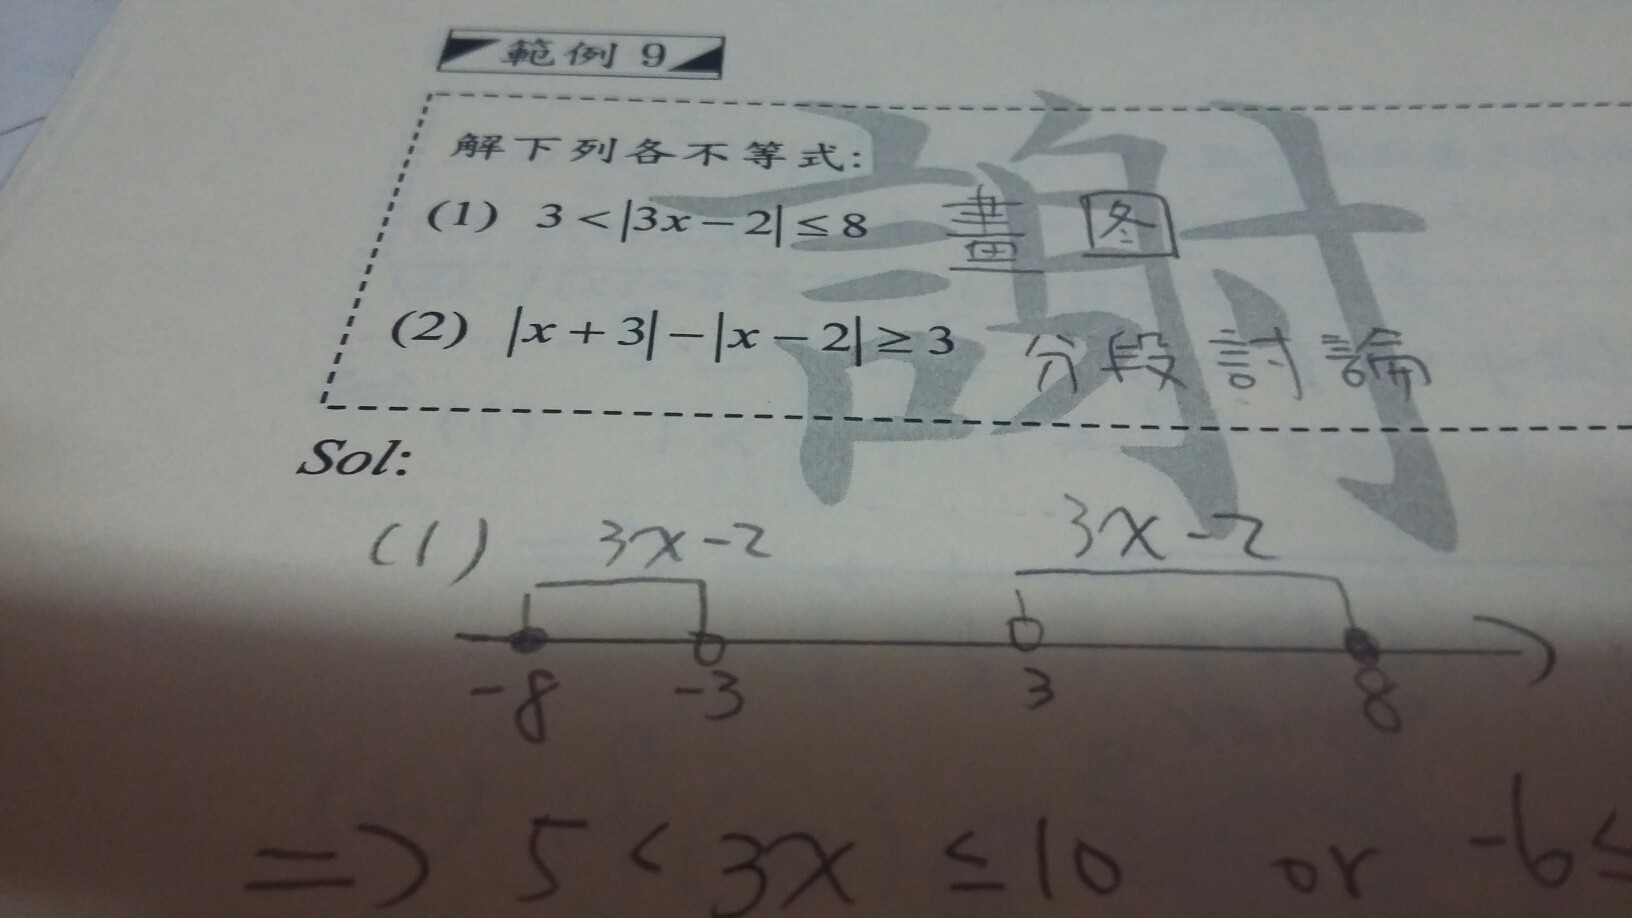 範例 9
解下列各不等式:
(1) 3 < |3x − 2| ≤ 8 畫 图
(2) |x + 3| − |x − 2| ≥ 3 分段討論
Sol:
(1) 3x-2 3x-2
-8 -3 3 8
=> 5 < 3x ≤ 10 or -6 ≤